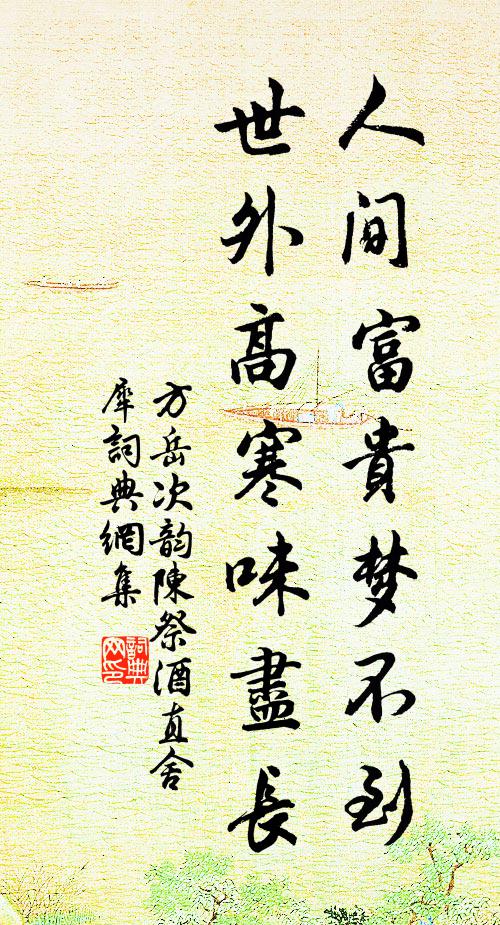 人间富貴梦不到
世外高寒味盡長
方岳次韵陳祭酒直舍
犀詞典網集
詞典
网印